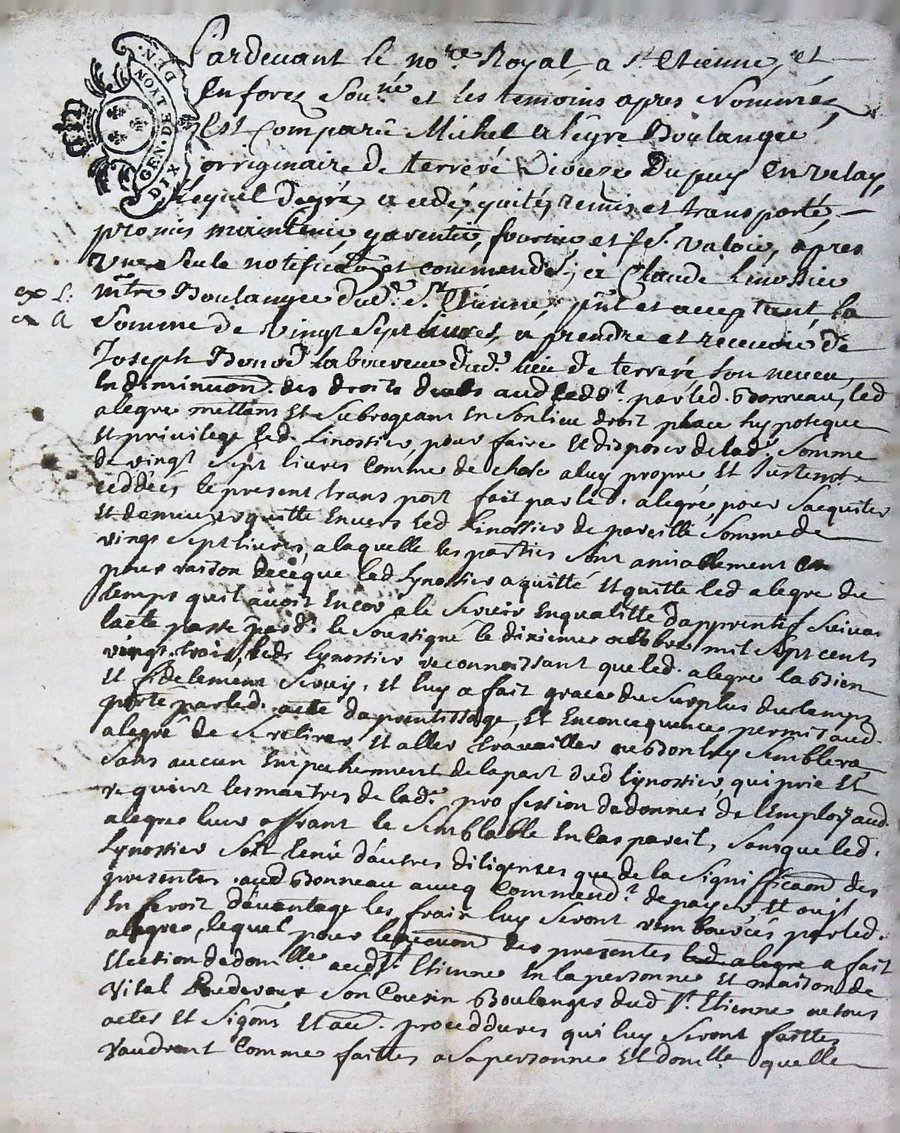 GEN. DE LYON
DIX DEN.
Pardeuant le no.re Royal, a St. Etienne, et
En forez Sou.né et les temoins apres Nommés
Est Comparû Michel Alégre Boulangé
orriginaire de terreré Dioceze Dupuy En velay,
lequel Degré, a cedé, quité, remis et transporté,
promis maintenir, garentir, fournir et fe. valoir, apres
Une Seule notiffica.on et commend.t, a Claude Linossier
m.tre Boulanger dud. St. Etienne, p.nt et acceptant la
Somme de Vingt Sept Liures, a prendre et receuoir de
Joseph Laboureur dud. lieu de terreré Son neueu
En diminuon des droits deubs aud. par led. Bonneau, led
alegre mettant Et Subrogeant En Son lieu droit place hypoteque
Et priuilege led. Linossier pour faire Et disposer de lad. Somme
de vingt Sept liures Comme de chose a luy propre Et
ceddées le present trans port fait par led. alegre pour S'aquiter
Et demeurer quitte Enuers led Linossier de pareille Somme de
vingt Sept liures, a laquelle les parties Sont amiablement
pour raison de ceque led Lynossier a quitté Et quitte led alegre du
temps qu'il auoit Encor a le Seruir En qualitté d'apprentif Suiuant
l'acte passé pard.t le Soussigné le dixieme octobre mil Sept cents
vingt trois, led. Lynossier reconnoissant que led. alegre la Bien
Et fidelement Seruy, Et luy a fait grace du Surplus du temps
porté par led. acte d'aprentissage, Et En concequence permis aud.
alegre de Se retirer Et aller trauailler ou Bon luy Semblera
Sans aucun Empechement de la part dud Lynossier, qui prie Et
requiert les maitres de lad. profession de donner de l'Employ aud.
alegre leur offrant le Semblable En Cas pareil, Sans que led.
Lynossier Soit tenû d'autres diligences que de la Signifficaon des
presentes aud Bonneau auecq Commend.t de payer Et ou Il
En feroit d'auantage les frais luy Seront rembourcés par led.
alegre, lequel pour l'execuon des presentes led. alegre a fait
Election de domi.lle aud St. Etienne En la personne Et maison de
Vital Son Cousin Boulanger dud St. Etienne ou tous
actes Et Et au. proceddures qui luy Seront faittes
vaudront Comme faittes a Sa personne Et domi.lle quelle